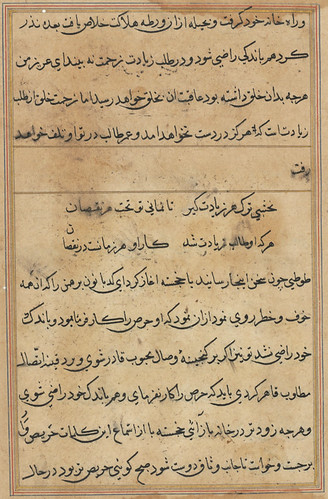 وراه خانه خود گرفت و بحیله از ان ورطه هلاکت خلاص یافت بعده نذر
کرد هر باندکی راضی شود و در طلب زیادت زحمت نه بیند ای عزیز من
هرچه بدان خلق داشته بود عاقبت ان بخلق خواهد رسید اما زحمت خلق از طلب
زیادت است که هرگز در دست نخواهد امد و عمر طالب در تو او تلف خواهد
رفت
نخشبی ترک هر زیادت گیر تا نمانی تو تحت هر نقصان
هر که او طالب زیادت شد کار او هر زمانت در نقصان
طوطی چون سخن اینجا رسانید با خجسته اغاز کرد ای کدبانو برهمن را که ان همه
خوف و خطر روی نمود از ان بود که او حرص را کار فرمود و باندک
خود راضی نشد تو نیز اگر خجسته وصال محبوب قادر شوی و
مطلوب قاهر کردی باید که حرص را کار نفرمای و همر باندک خود راضی شوی
و هرچه زودتر در خانه باز آئی خجسته با از استماع این کلمات حریص
برجست و خواست تا جانب وثاق دوست شود صبح کوئی حریص تر بود در حال